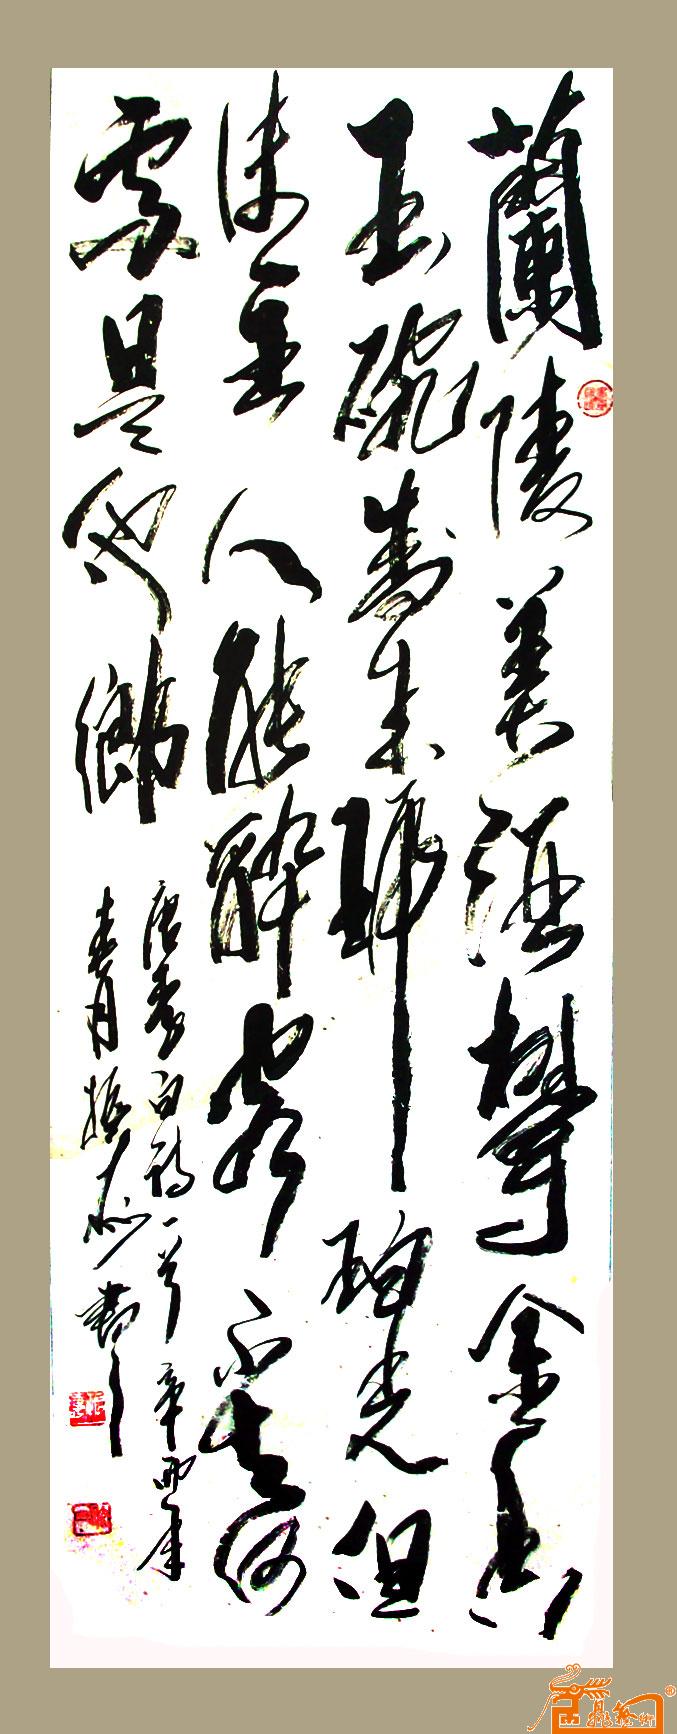 蘭陵美酒鬱金香
玉碗盛来琥珀光但
使主人能醉客不知何
處是他鄉
唐李白詩一首辛卯年
春月振書